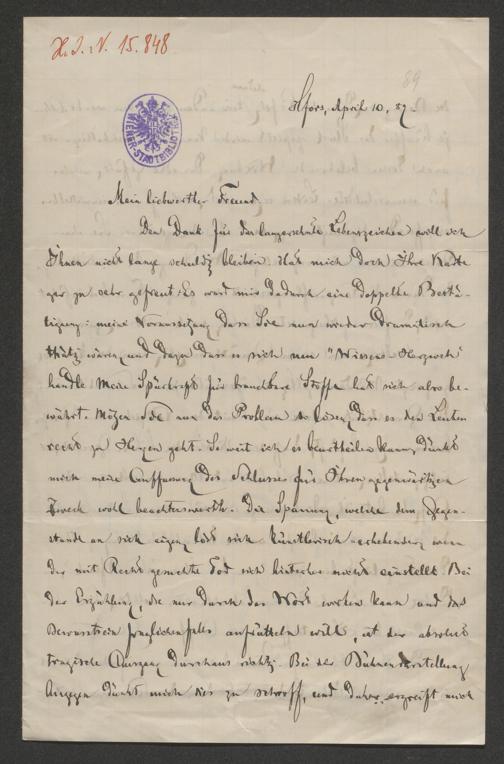 H. I. N. 15.848
89
WIENER-STADTBIBLIOTHEK
Hfors, April 10, 89.
Mein liebwerther Freund
Den Dank für das langersehnte Lebenszeichen will ich
Ihnen nicht lange schuldig bleiben. Hat mich doch Ihre Karte
gar zu sehr gefreut. Es ward mir dadurch eine doppelte Bestä-
tigung: meine Voraussetzung dass Sie nun wieder dramatisch
thätig wären, und dazu dass es sich um
handle. Meine für brauchbare Stoffe hat sich also be-
währt. Mögen Sie nun das Problem so lösen, dass es den Leuten
recht zu Herzen geht. So weit ich es beurtheilen kann, dünkt
mich meine Auffassung des Schlusses für Ihren gegenwärtigen
Zweck wohl beachtenswerth. Die Spannung, welche dem Gegen-
stande an sich eigen, löst sich künstlerisch wenn
der mit Recht gesuchte Tod sich hinterher nicht einstellt. Bei
der Erzählung, die nur durch das Wort wirken kann und das
Bewusstsein jenfalls aufrütteln will, ist der absolut
tragische Ausgang durchaus richtig. Bei der Bühnendarstellung
hingegen dünkt mich dies zu schroff, und daher ergreift mich